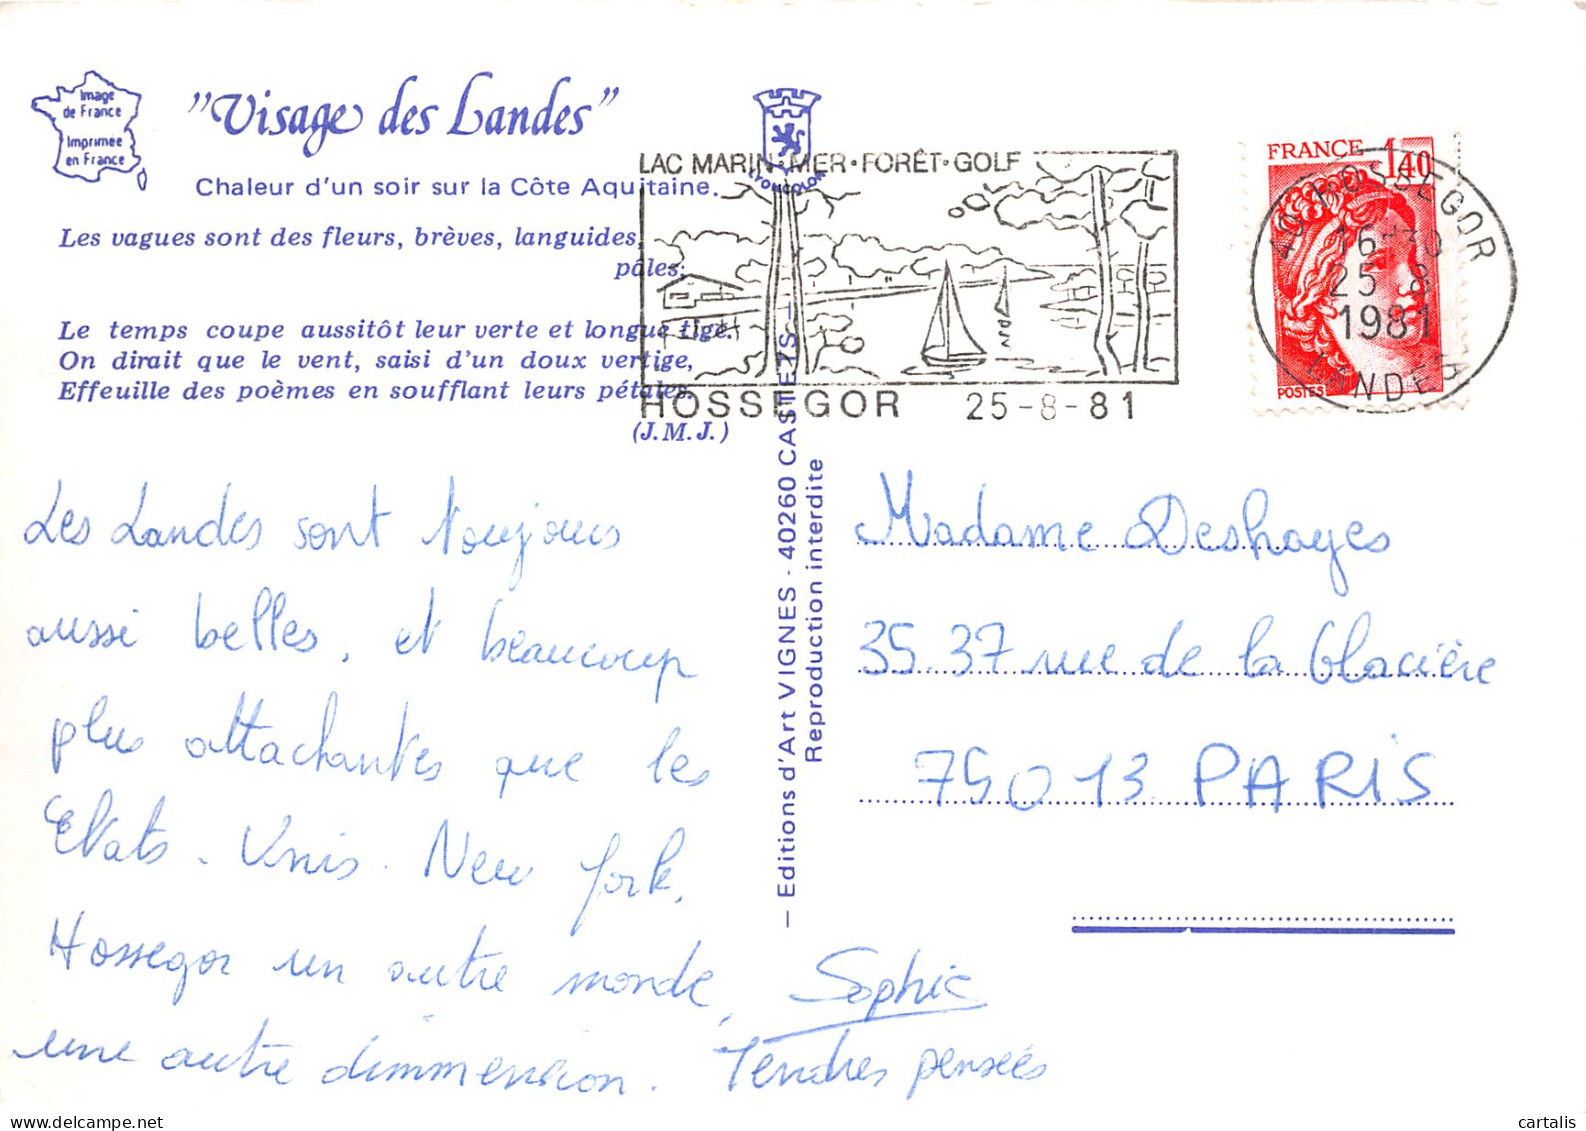 Image
de France
Imprimée
en France
"Visage des Landes"
Chaleur d'un soir sur la Côte Aquitaine.
Les vagues sont des fleurs, brèves, languides,
pâles;
Le temps coupe aussitôt leur verte et longue tige.
On dirait que le vent, saisi d'un doux vertige,
Effeuille des poèmes en soufflant leurs pétales.
(J.M.J.)
LYONCOLOR
LAC MARIN·MER·FORÊT·GOLF
HOSSEGOR 25-8-81
FRANCE 1,40
POSTES
40 HOSSEGOR
16H30
25-8
1981
LANDES
— Editions d'Art VIGNES - 40260 CASTETS —
Reproduction interdite
Les Landes sont toujours
aussi belles, et beaucoup
plus attachantes que les
Etats-Unis. New York,
Hossegor un autre monde,
une autre dimmension. Tendres pensées
Sophie
Madame Deshayes
35.37 rue de la Glacière
75013 PARIS
delcampe.net
cartalis